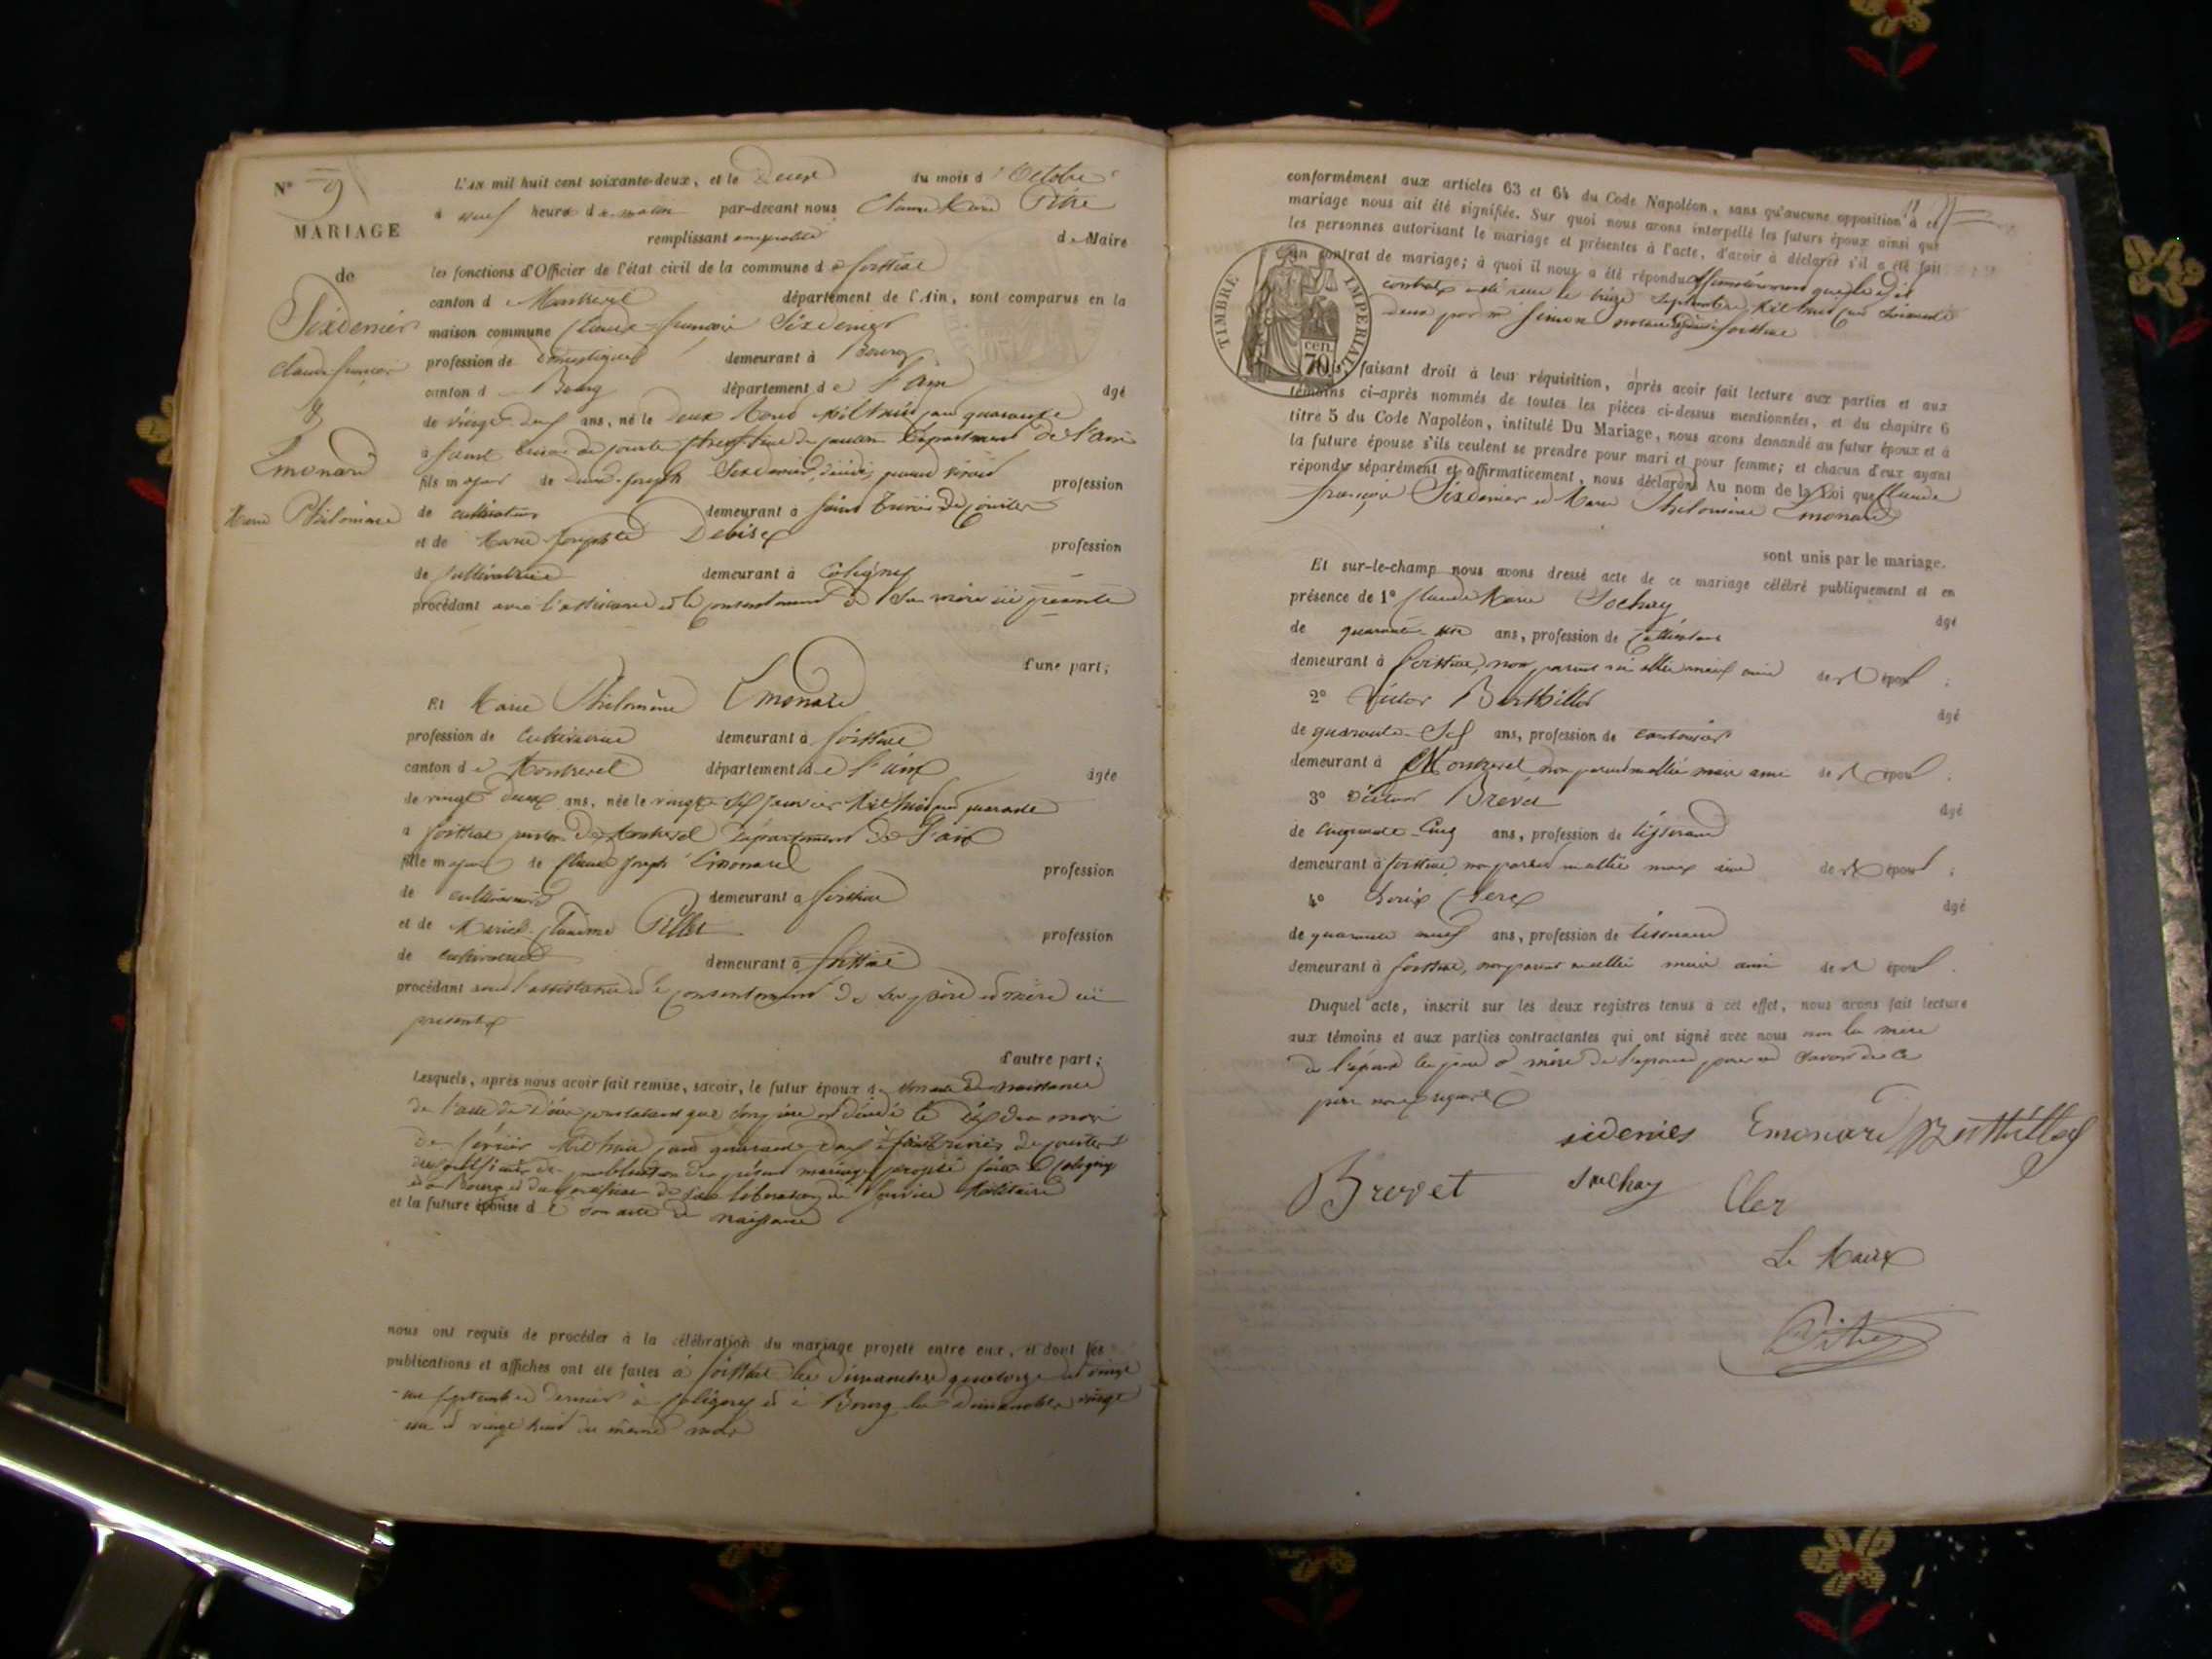 N° 9
MARIAGE
de
Sixdenier
Claude françois
&
Emonard
Marie Philomène
L'AN mil huit cent soixante-deux, et le Deux du mois d'Octobre
à neuf heures du matin par-devant nous Claude Marie Pitre
remplissant en qualité de Maire
les fonctions d'Officier de l'état civil de la commune de foissiat
canton de Montrevel département de l'Ain, sont comparus en la
maison commune Claude-françois Sixdenier
profession de Domestique demeurant à Bourg
canton d Bourg département de l'Ain âgé
de vingt deux ans, né le Deux Mars mil huit cent quarante
à Saint trivier de Courtes département de l'ain
fils majeur de Joseph Sixdenier profession
de cultivateur demeurant à Saint Trivier de Courtes
et de Marie Josephte Debise profession
de cultivatrice demeurant à Coligny
procédant avec l'assistance et le consentement de Sa mère ici présente
d'une part;
Et Marie Philomène Emonard
profession de Cultivatrice demeurant à foissiat
canton de Montrevel département de l'ain âgée
de vingt deux ans, née le vingt janvier Mil huit cent quarante
à foissiat canton de Montrevel Département de l'ain
fille majeure de Claude Joseph Emonard profession
de cultivateur demeurant à foissiat
et de Marie Claudine Pillet profession
de cultivatrice demeurant à foissiat
procédant sous l'assistance et le consentement de ses père et mère ici
présents
d'autre part;
Lesquels, après nous avoir fait remise, savoir, le futur époux de son acte de naissance
de l'acte de Décès constatant que son père est décédé le dix du mois
de février Mil huit cent quarante à Saint trivier de Courtes
de publication du présent mariage projeté faite à Coligny
et à Bourg et du certificat de sa libération du Service Militaire
et la future épouse de son acte de naissance
nous ont requis de procéder à la célébration du mariage projeté entre eux, et dont les
publications et affiches ont été faites à foissiat les Dimanches quatorze et vingt
-un Septembre dernier à Coligny et à Bourg les Dimanches vingt
un et vingt huit du même mois
conformément aux articles 63 et 64 du Code Napoléon, sans qu'aucune opposition à ce
mariage nous ait été signifiée. Sur quoi nous avons interpellé les futurs époux ainsi que
les personnes autorisant le mariage et présentes à l'acte, d'avoir à déclarer s'il a été fait
un contrat de mariage; à quoi il nous a été répondu affirmativement que le dit
contrat a été reçu le treize Septembre Mil huit cent soixante
deux par Me Simon notaire à foissiat
TIMBRE IMPERIAL
70 cen.
faisant droit à leur réquisition, après avoir fait lecture aux parties et aux
témoins ci-après nommés de toutes les pièces ci-dessus mentionnées, et du chapitre 6
titre 5 du Code Napoléon, intitulé Du Mariage, nous avons demandé au futur époux et à
la future épouse s'ils veulent se prendre pour mari et pour femme; et chacun d'eux ayant
répondu séparément et affirmativement, nous déclarons Au nom de la Loi que Claude
françois Sixdenier et Marie Philomène Emonard
sont unis par le mariage.
Et sur-le-champ nous avons dressé acte de ce mariage célébré publiquement et en
présence de 1° Claude Marie Sochay âgé
de quarante ans, profession de Cultivateur
demeurant à foissiat, non parent ni allié mais ami des époux;
2° Victor Berthillot âgé
de quarante Six ans, profession de cantonnier
demeurant à Montrevel non parent ni allié mais ami des époux;
3° Victor Brevet âgé
de Cinquante-Cinq ans, profession de tisserand
demeurant à foissiat, non parent ni allié mais ami des époux;
4° Louis Clerc âgé
de quarante neuf ans, profession de tisserand
demeurant à foissiat, non parent ni allié mais ami des époux.
Duquel acte, inscrit sur les deux registres tenus à cet effet, nous avons fait lecture
aux témoins et aux parties contractantes qui ont signé avec nous non la mère
de l'époux les père et mère de l'épouse pour ne savoir de ce
par nous requis
sidenies Emonard Berthillot
Brevet Sochay Cler
Le Maire
Pitre